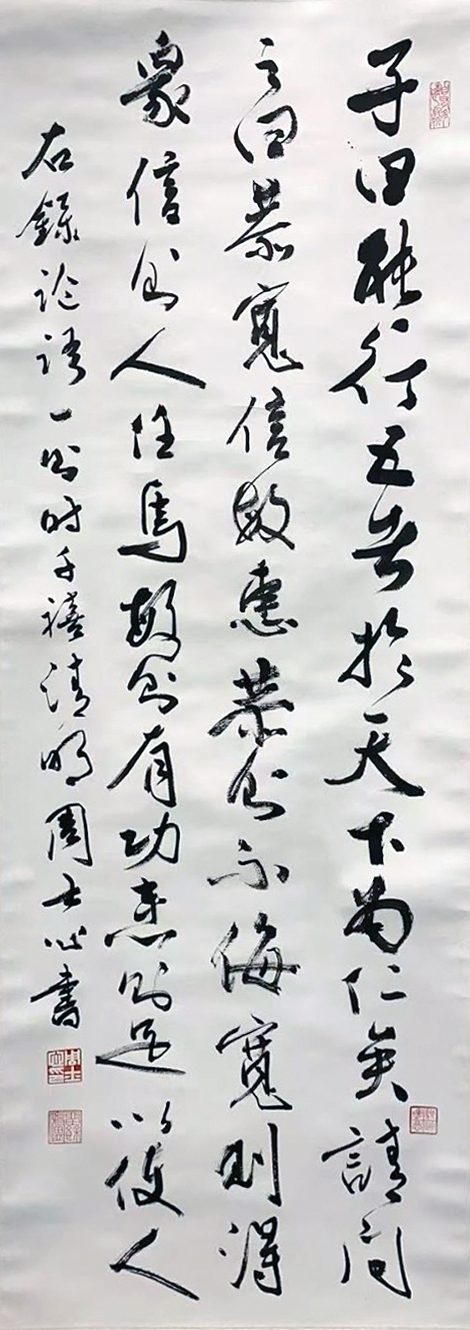 子曰能行五者於天下為仁矣請問
之曰恭寬信敏惠恭則不侮寬則得
眾信則人任焉敏則有功惠則足以使人
右錄論語一則時千禧清明周士心書
周士心印